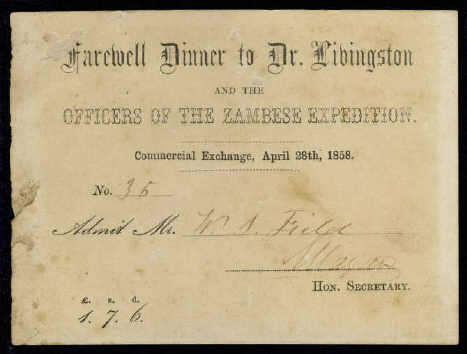 Farewell Dinner to Dr. Livingston
AND THE
OFFICERS OF THE ZAMBESE EXPEDITION.
Commercial Exchange, April 28th, 1858.
No. 35
Admit Mr. Field
HON. SECRETARY.
£. s. d.
1. 7. 6.